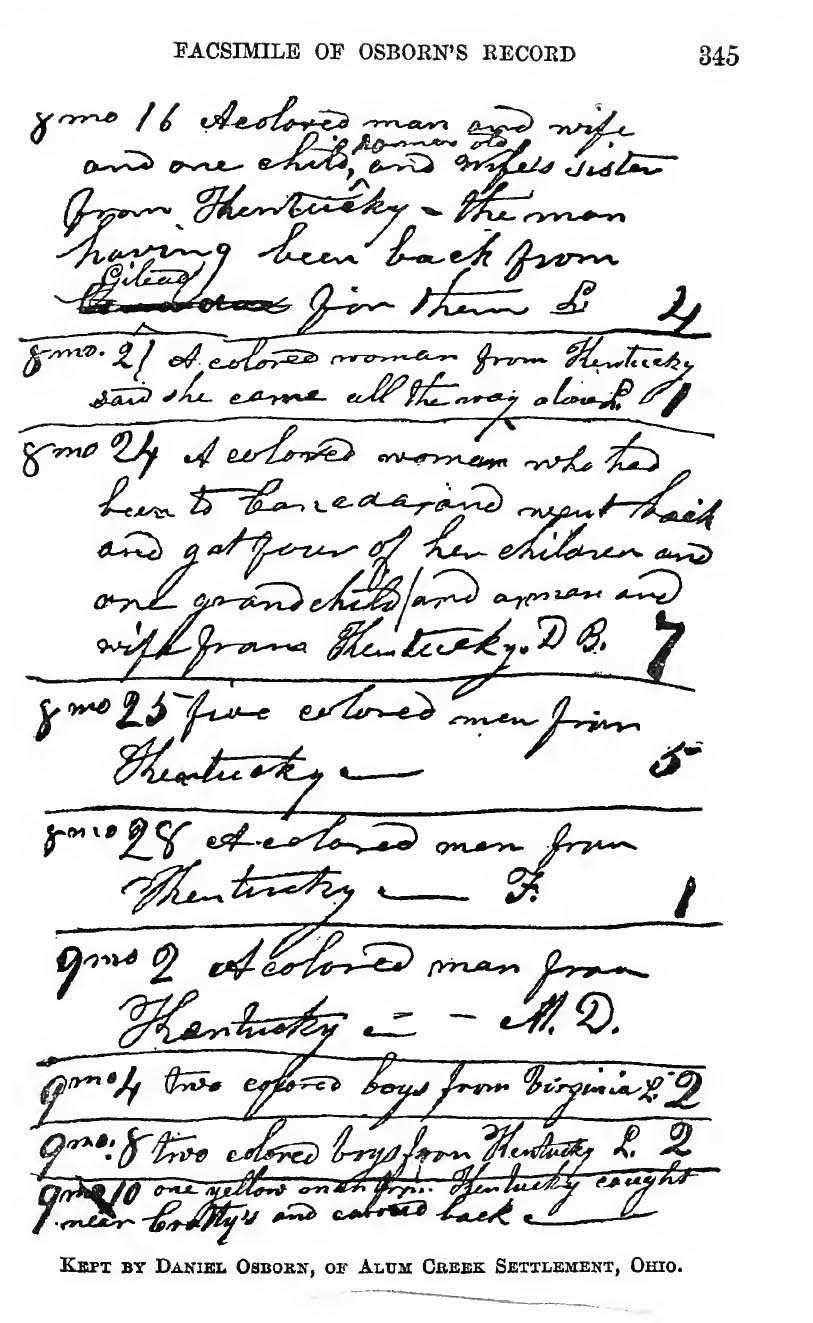 FACSIMILE OF OSBORN'S RECORD 345
8 mo 16 A colored man and wife
old
and one child, and wife's sister
from Kentucky - the man
having been back from
Gilead
for them L 4
8 mo. 21 A colored woman from Kentucky
said she came all the way alone L 1
8 mo 24 A colored woman who had
been to Canada, and went back
and got four of her children and
one grandchild, and a man and
wife from Kentucky. D B. 7
8 mo 25 five colored men from
Kentucky — 5
8 mo 28 A colored man from
Kentucky — F. 1
9 mo 2 A colored man from
Kentucky = - M. D.
9 mo 4 two colored boys from Virginia L 2
9 mo. 8 two colored boys from Kentucky L. 2
9 mo 10 one yellow man from Kentucky caught
near Bratty's and carried back —
KEPT BY DANIEL OSBORN, OF ALUM CREEK SETTLEMENT, OHIO.